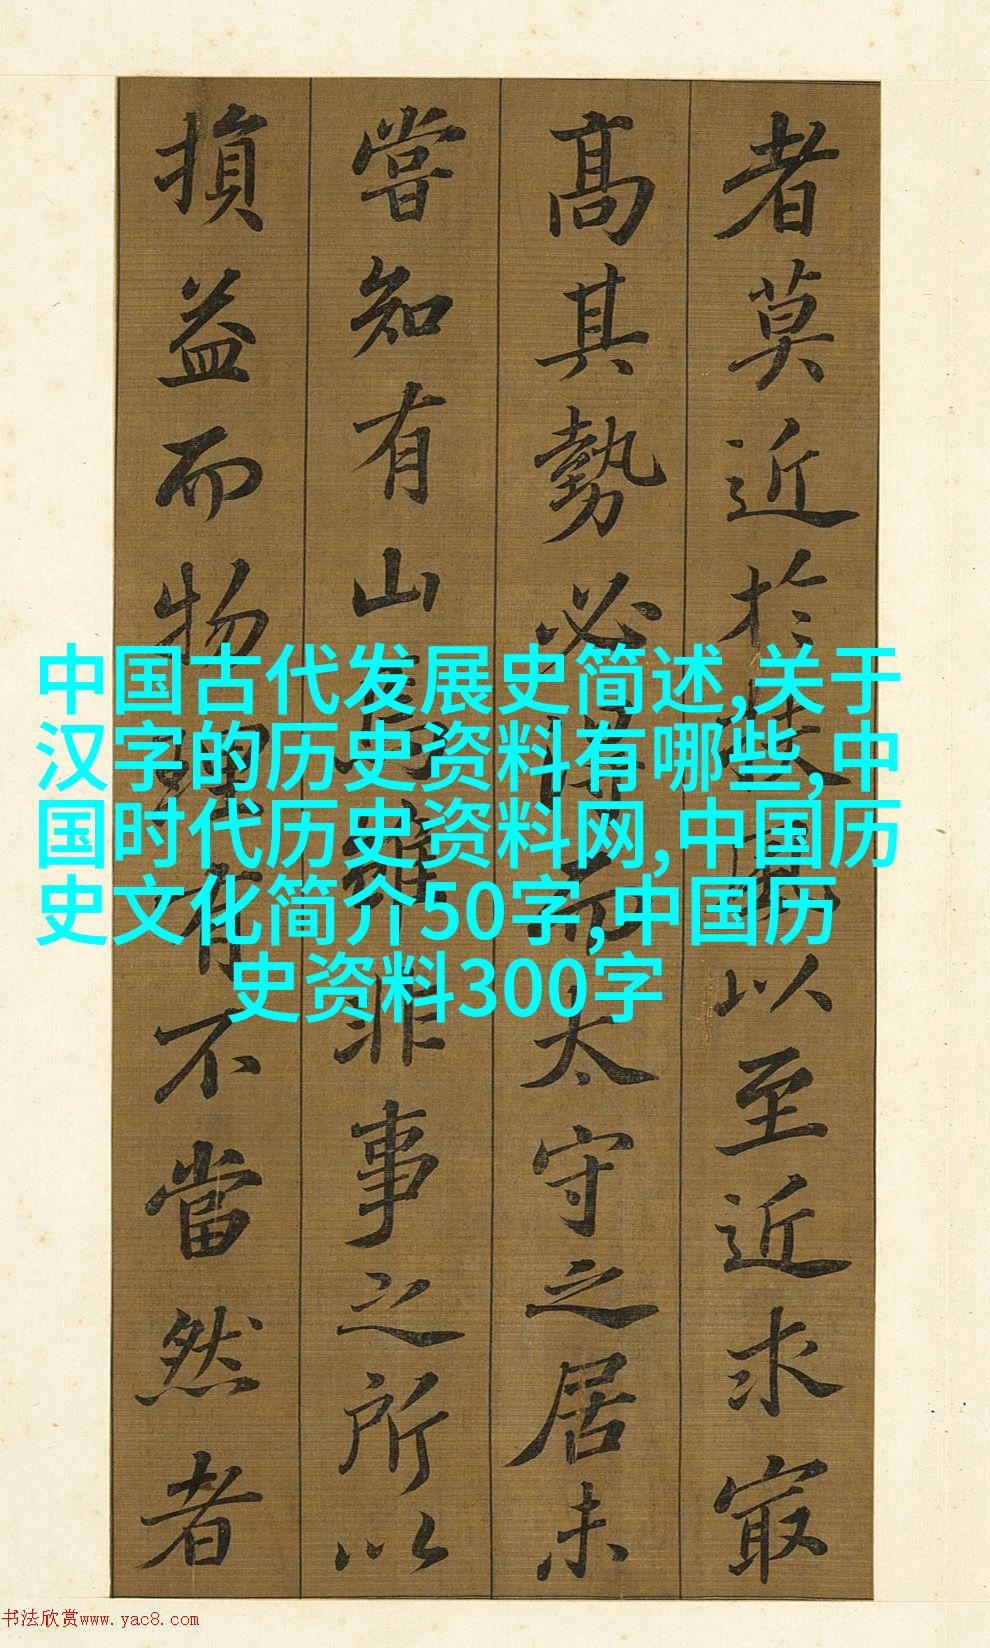 中国古代发展史简述,关于
汉字的历史资料有哪些,中
国时代历史资料网,中国历
史文化简介50字,中国历
史资料300字
者莫近於扶風以至近求㝡
髙其勢必得而太守之居未
嘗知有山焉雖非事之所以
損益而物理有不當然者
书法欣赏www.yac8.com